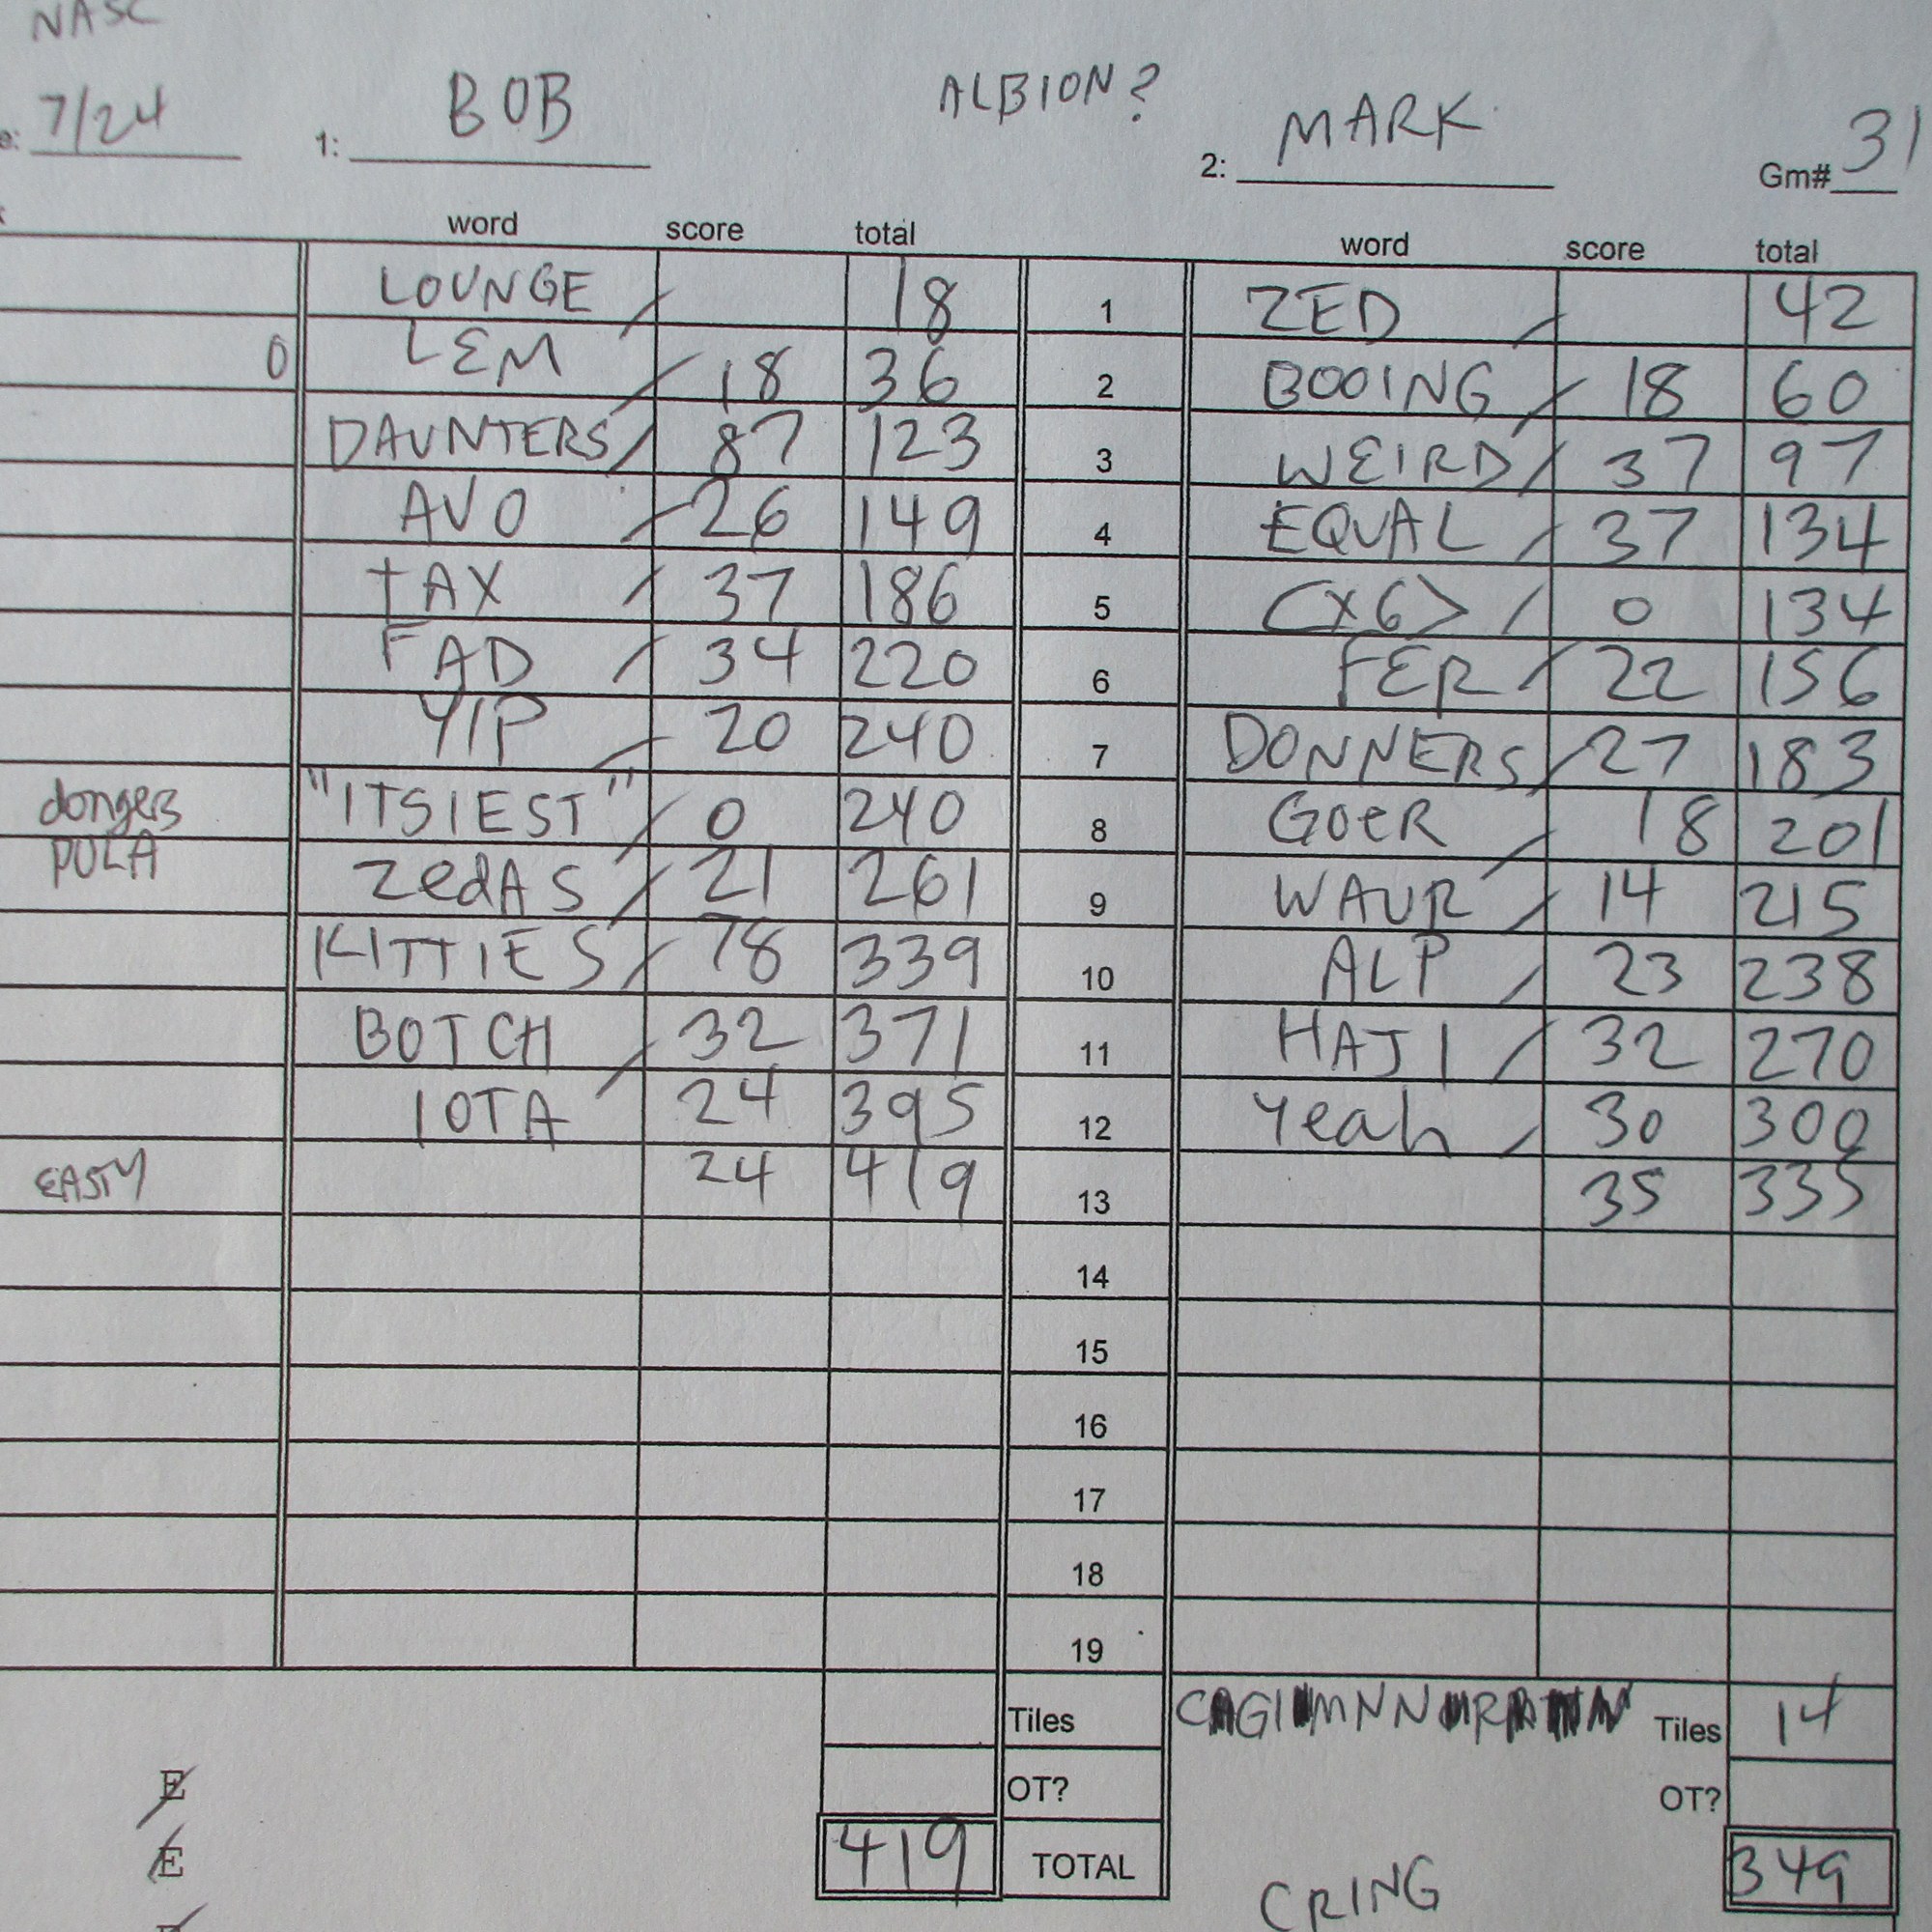 NASC
e: 7/24 1: BOB ALBION? 2: MARK Gm# 31
word score total word score total
LOUNGE 18 1 ZED 42
0 LEM 18 36 2 BOOING 18 60
DAUNTERS 87 123 3 WEIRD 37 97
AVO 26 149 4 EQUAL 37 134
TAX 37 186 5 <X6> 0 134
FAD 34 220 6 FER 22 156
YIP 20 240 7 DONNERS 27 183
dongers "ITSIEST" 0 240 8 GOeR 18 201
PULA ZedAS 21 261 9 WAUR 14 215
KITTIES 78 339 10 ALP 23 238
BOTCH 32 371 11 HAJI 32 270
IOTA 24 395 12 Yeah 30 300
EASTY 24 419 13 35 335
14
15
16
17
18
19
Tiles Tiles 14
E OT? OT?
E 419 TOTAL 349
CRING